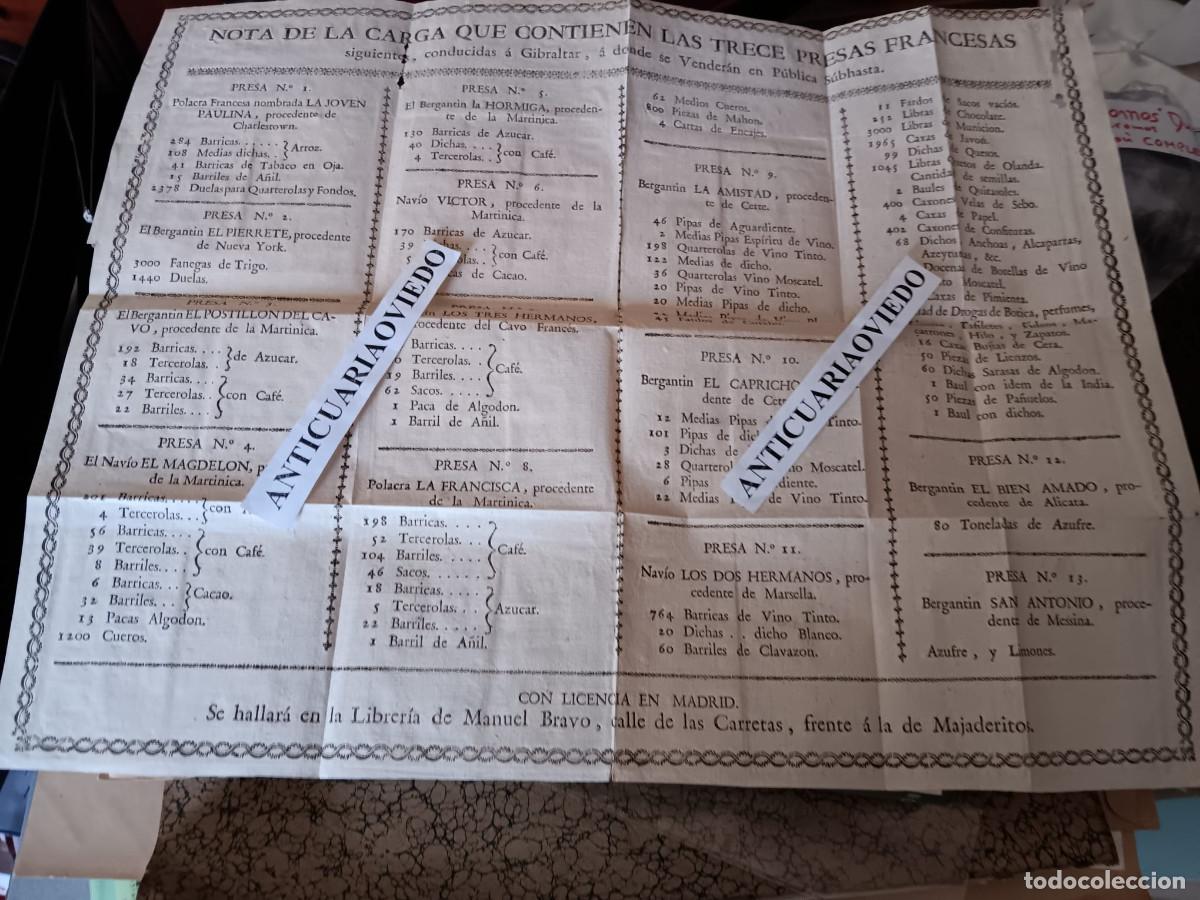 NOTA DE LA CARGA QUE CONTIENEN LAS TRECE PRESAS FRANCESAS
siguientes, conducidas á Gibraltar, á donde se Venderán en Pública Súbhasta.
PRESA N.º 1.
Polacra Francesa nombrada LA JOVEN
PAULINA, procedente de
Charlestown.
284 Barricas.....
108 Medias dichas.. Arroz.
41 Barricas de Tabaco en Oja.
15 Barriles de Añil.
2378 Duelas para Quarterolas y Fondos.
PRESA N.º 2.
El Bergantin EL PIERRETE, procedente
de Nueva York.
3000 Fanegas de Trigo.
1440 Duelas.
PRESA N.º
El Bergantin EL POSTILLON DEL CA-
VO, procedente de la Martinica.
192 Barricas....
18 Tercerolas.. de Azucar.
34 Barricas....
27 Tercerolas.. con Café.
22 Barriles...
PRESA N.º 4.
El Navío EL MAGDELON,
de la Martinica.
201 Barricas....
4 Tercerolas... con
56 Barricas....
39 Tercerolas.. con Café.
8 Barriles....
6 Barricas...
32 Barriles... Cacao.
13 Pacas Algodon.
1200 Cueros.
PRESA N.º 5.
El Bergantin la HORMIGA, proceden-
te de la Martinica.
130 Barricas de Azucar.
40 Dichas...
4 Tercerolas. con Café.
PRESA N.º 6.
Navío VICTOR, procedente de la
Martinica.
170 Barricas de Azucar.
39
5 con Café.
de Cacao.
LOS TRES HERMANOS,
procedente del Cavo Francés.
Barricas....
Tercerolas...
19 Barriles.... Café.
62 Sacos....
1 Paca de Algodon.
1 Barril de Añil.
PRESA N.º 8.
Polacra LA FRANCISCA, procedente
de la Martinica.
198 Barricas....
52 Tercerolas...
104 Barriles.... Café.
46 Sacos.....
18 Barricas....
5 Tercerolas... Azucar.
22 Barriles.....
1 Barril de Añil.
62 Medios Cueros.
800 Piezas de Mahon.
4 Cartas de Encajes.
PRESA N.º 9.
Bergantin LA AMISTAD, proceden-
te de Cette.
46 Pipas de Aguardiente.
2 Medias Pipas Espíritu de Vino.
198 Quarterolas de Vino Tinto.
122 Medias de dicho.
36 Quarterolas Vino Moscatel.
20 Pipas de Vino Tinto.
20 Medias Pipas de dicho.
PRESA N.º 10.
Bergantin EL CAPRICHO
dente de
12 Medias Pipas Tinto.
101 Pipas de
3 Dichas de
28 Moscatel.
6 Pipas
22 Medias de Vino Tinto.
PRESA N.º 11.
Navío LOS DOS HERMANOS, pro-
cedente de Marsella.
764 Barricas de Vino Tinto.
20 Dichas.. dicho Blanco.
60 Barriles de Clavazon.
11 Fardos de Sacos vacíos.
252 Libras de Chocolate.
3000 Libras de Municion.
1965 Caxas de Javon.
99 Dichas de Quesos.
1045 Libras Quesos de Olanda.
de semillas.
2 Baules de Quitasoles.
400 Caxones Velas de Sebo.
4 Caxas de Papel.
402 Caxones de Confituras.
68 Dichos, Anchoas, Alcaparras,
Azeytunas, &c.
Docenas de Botellas de Vino
Moscatel.
Caxas de Pimienta.
de Drogas de Botica, perfumes,
Hilo, y Zapatos.
16 Caxas Bujias de Cera.
50 Piezas de Lienzos.
60 Dichas Sarasas de Algodon.
1 Baul con idem de la India.
50 Piezas de Pañuelos.
1 Baul con dichos.
PRESA N.º 12.
Bergantin EL BIEN AMADO, pro-
cedente de Alicata.
80 Toneladas de Azufre.
PRESA N.º 13.
Bergantin SAN ANTONIO, proce-
dente de Messina.
Azufre, y Limones.
CON LICENCIA EN MADRID.
Se hallará en la Librería de Manuel Bravo, calle de las Carretas, frente á la de Majaderitos.
ANTICUARIAOVIEDO
ANTICUARIAOVIEDO
todocoleccion